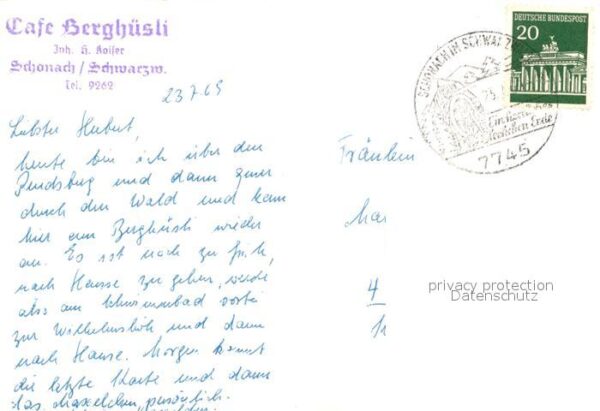 Cafe Berghüsli
Inh. H. Kaiser
Schonach / Schwarzw.
Tel. 9262
23.7.69
DEUTSCHE BUNDESPOST
20
SCHONACH IM SCHWARZW
7745
Liebster Hubert,
heute bin ich über den
und dann quer
durch den Wald und kam
hier am Berghüsli wieder
an. Es ist noch zu früh,
nach Hause zu gehen, werde
also am Schwimmbad vorbei
zur Wilhelmshöh und dann
nach Hause. Morgen kommt
die letzte Karte und dann
das persönlich.
Fräulein
4
privacy protection
Datenschutz